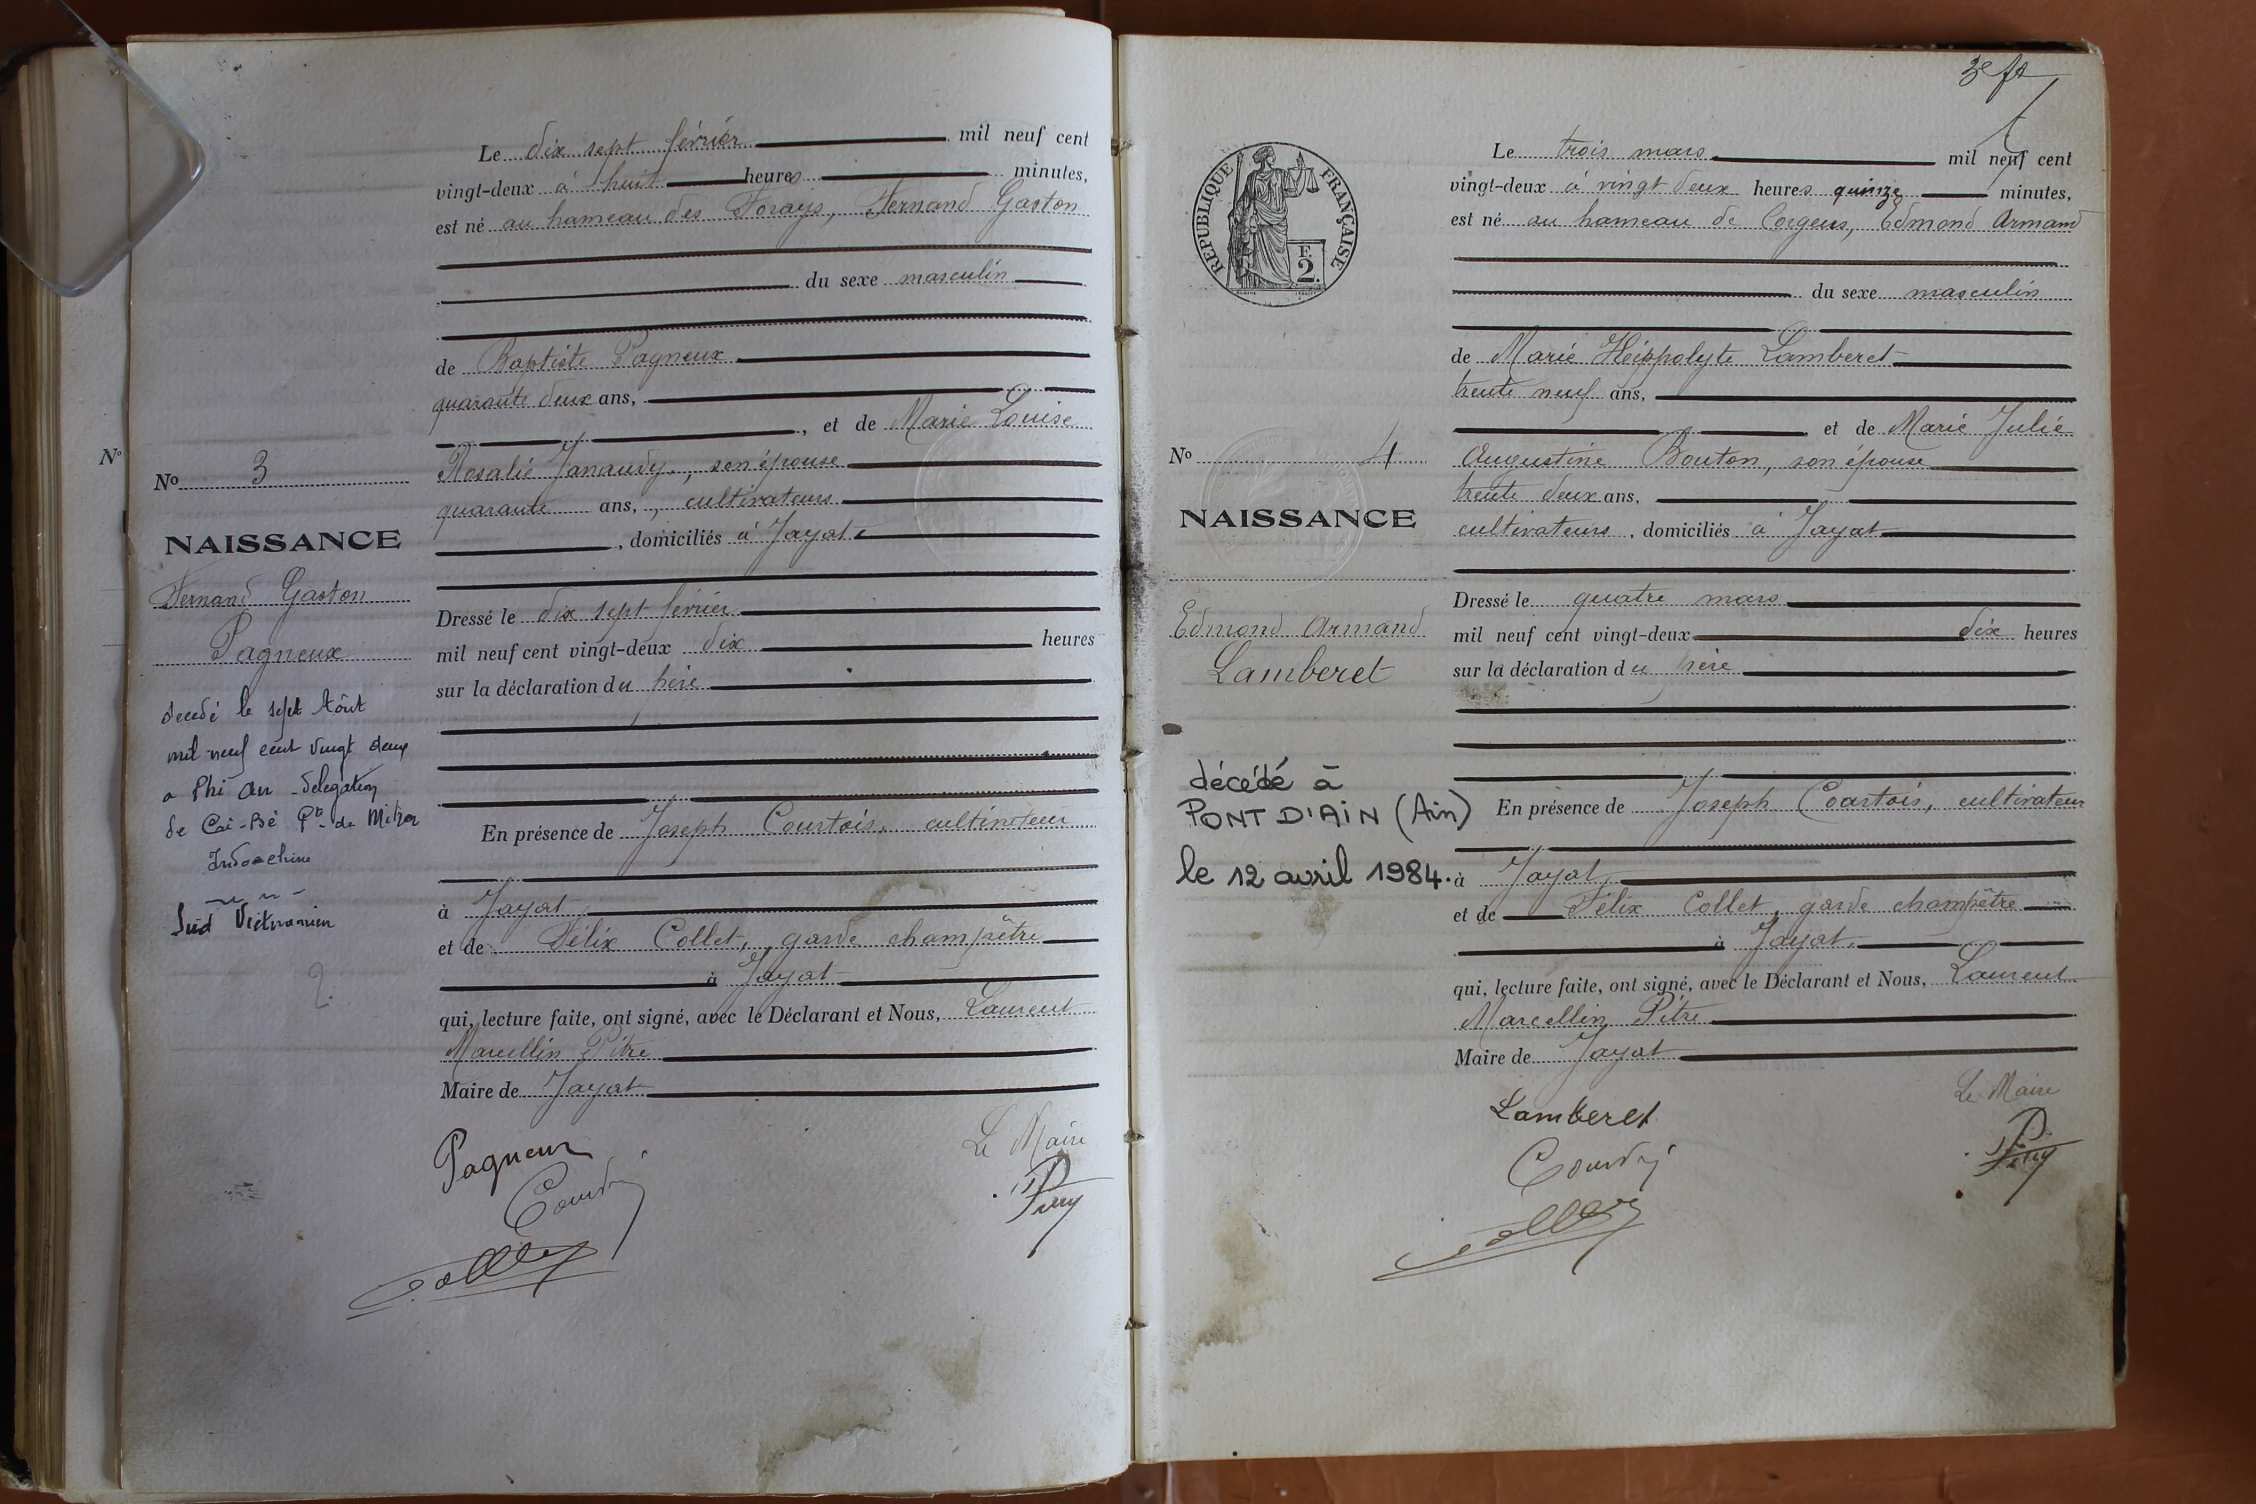 Le dix sept février mil neuf cent
vingt-deux à huit heures minutes,
est né au hameau des Forays, Fernand Gaston
du sexe masculin
de Baptiste Pagneux
quarante deux ans,
, et de Marie Louise
Rosalie Janaudy, son épouse
quarante ans, , cultivateurs
, domiciliés à Jayat
Dressé le dix sept février
mil neuf cent vingt-deux dix heures
sur la déclaration du père
En présence de Joseph Courtois, cultivateur
à Jayat
et de Félix Collet, garde champêtre
à Jayat
qui, lecture faite, ont signé, avec le Déclarant et Nous, Laurent
Marcellin Pitre
Maire de Jayat
Le Maire
Pagneux
No
No 3
NAISSANCE
Fernand Gaston
Pagneux
décédé le sept Août
mil neuf cent vingt deux
a Phi an delegation
de Cai-Bé Pce de Mitho
Indochine
Sud Vietnamien
2.
3e ft
RÉPUBLIQUE FRANÇAISE
F.
2.
Le trois mars mil neuf cent
vingt-deux à vingt deux heures quinze minutes,
est né au hameau de Corgeus, Edmond Armand
du sexe masculin
de Marie Heippolyte Lamberet
trente neuf ans,
et de Marie Julie
Augustine Bouton, son épouse
trente deux ans,
cultivateurs, domiciliés à Jayat
Dressé le quatre mars
mil neuf cent vingt-deux dix heures
sur la déclaration du père
En présence de Joseph Courtois, cultivateur
à Jayat
et de Félix Collet, garde champêtre
à Jayat,
qui, lecture faite, ont signé, avec le Déclarant et Nous, Laurent
Marcellin Pitre
Maire de Jayat
Le Maire
Lamberet
No 4
NAISSANCE
Edmond Armand
Lamberet
décédé à
PONT D'AIN (Ain)
le 12 avril 1984.